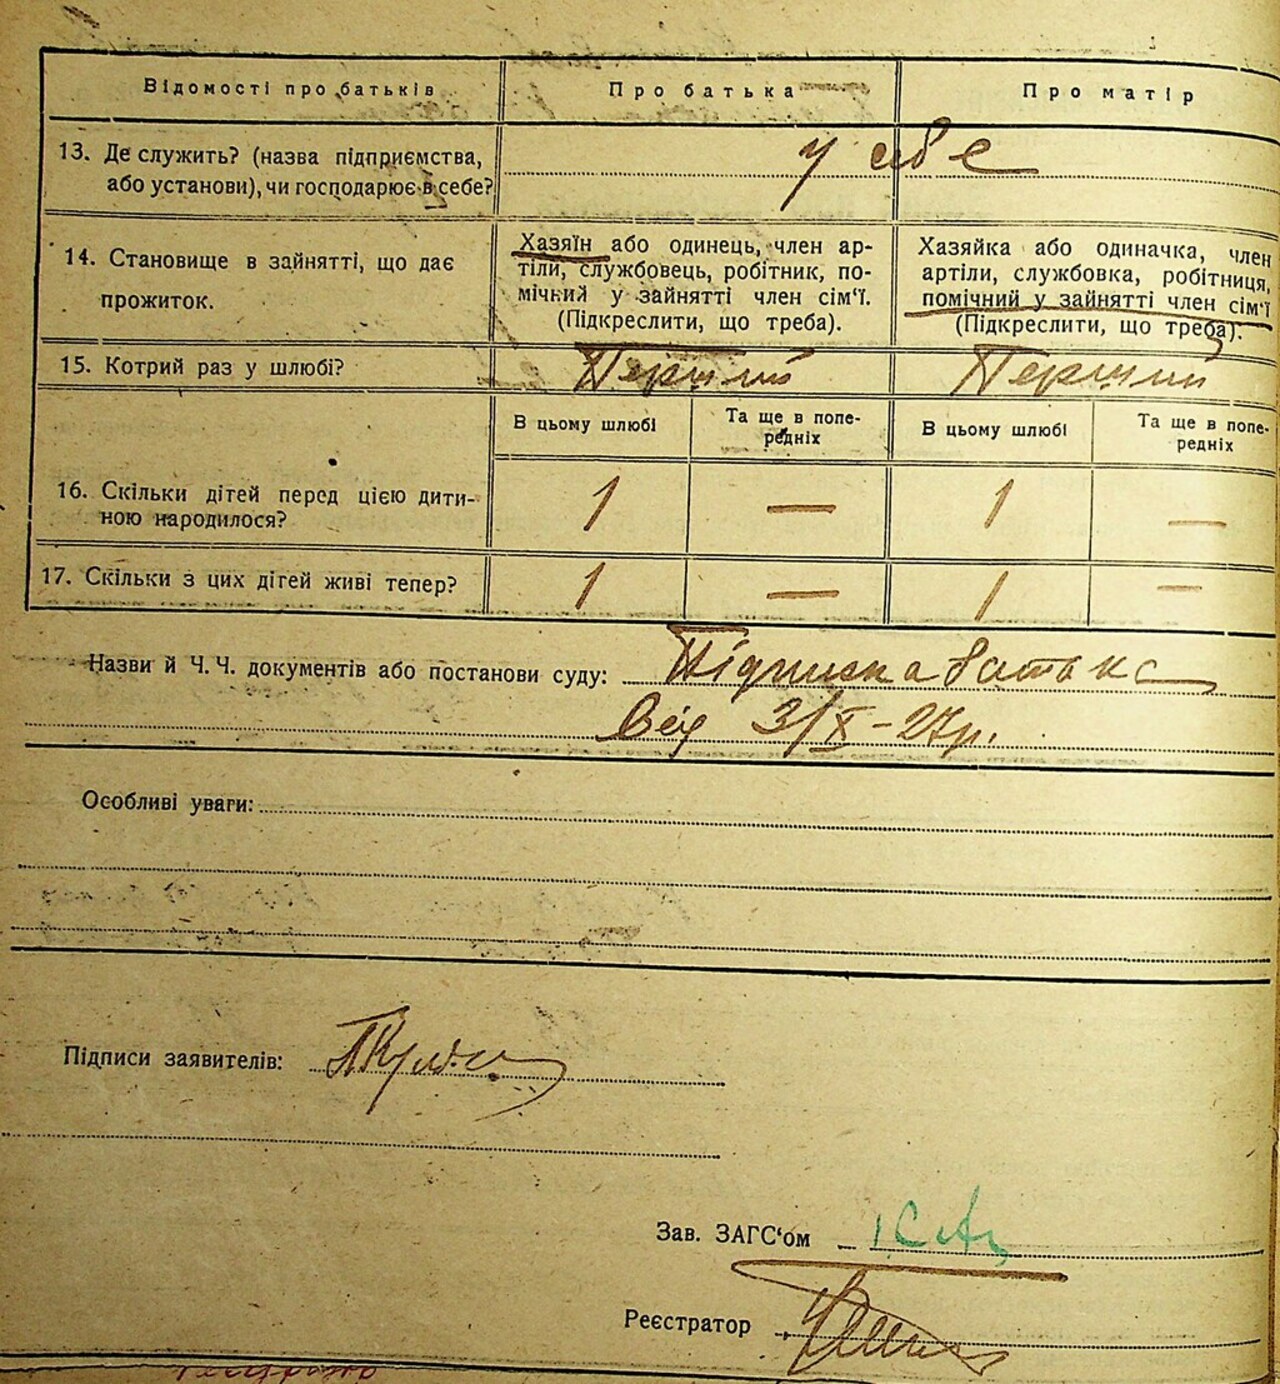 Відомості про батьків Про батька Про матір
13. Де служить? (назва підприємства, або установи), чи господарює в себе?
у себе
14. Становище в зайнятті, що дає прожиток.
Хазяїн або одинець, член ар-
тіли, службовець, робітник, по-
мічний у зайнятті член сім'ї.
(Підкреслити, що треба).
Хазяйка або одиначка, член
артіли, службовка, робітниця,
помічний у зайнятті член сім'ї
(Підкреслити, що треба).
15. Котрий раз у шлюбі? Перший Перший
В цьому шлюбі Та ще в попе-
редніх В цьому шлюбі Та ще в попе-
редніх
16. Скільки дітей перед цією дити-
ною народилося? 1 — 1 —
17. Скільки з цих дітей живі тепер? 1 — 1 —
Назви й Ч. Ч. документів або постанови суду: Підписка батька
Від 3/X-27р.
Особливі уваги:
Підписи заявителів:
Зав. ЗАГС'ом
Реєстратор